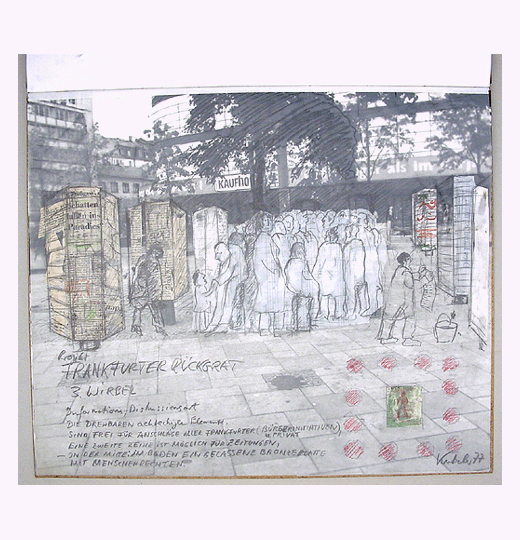 KAUFHO
als im
Schatten
Paradies
Projekt
FRANKFURTER RÜCKGRAT
3. WIRBEL
Information, Diskussionsort
DIE DREHBAREN achteckigen Elemente
SIND FREI FÜR ANSCHLÄGE ALLER FRANKFURTER (BÜRGERINITIATIVEN,
u PRIVAT
EINE ZWEITE REIHE IST MÖGLICH FÜR ZEITUNGEN,
— IN DER MITTE IM BODEN EIN GELASSENE BRONZEPLATTE
MIT MENSCHENRECHTEN
77